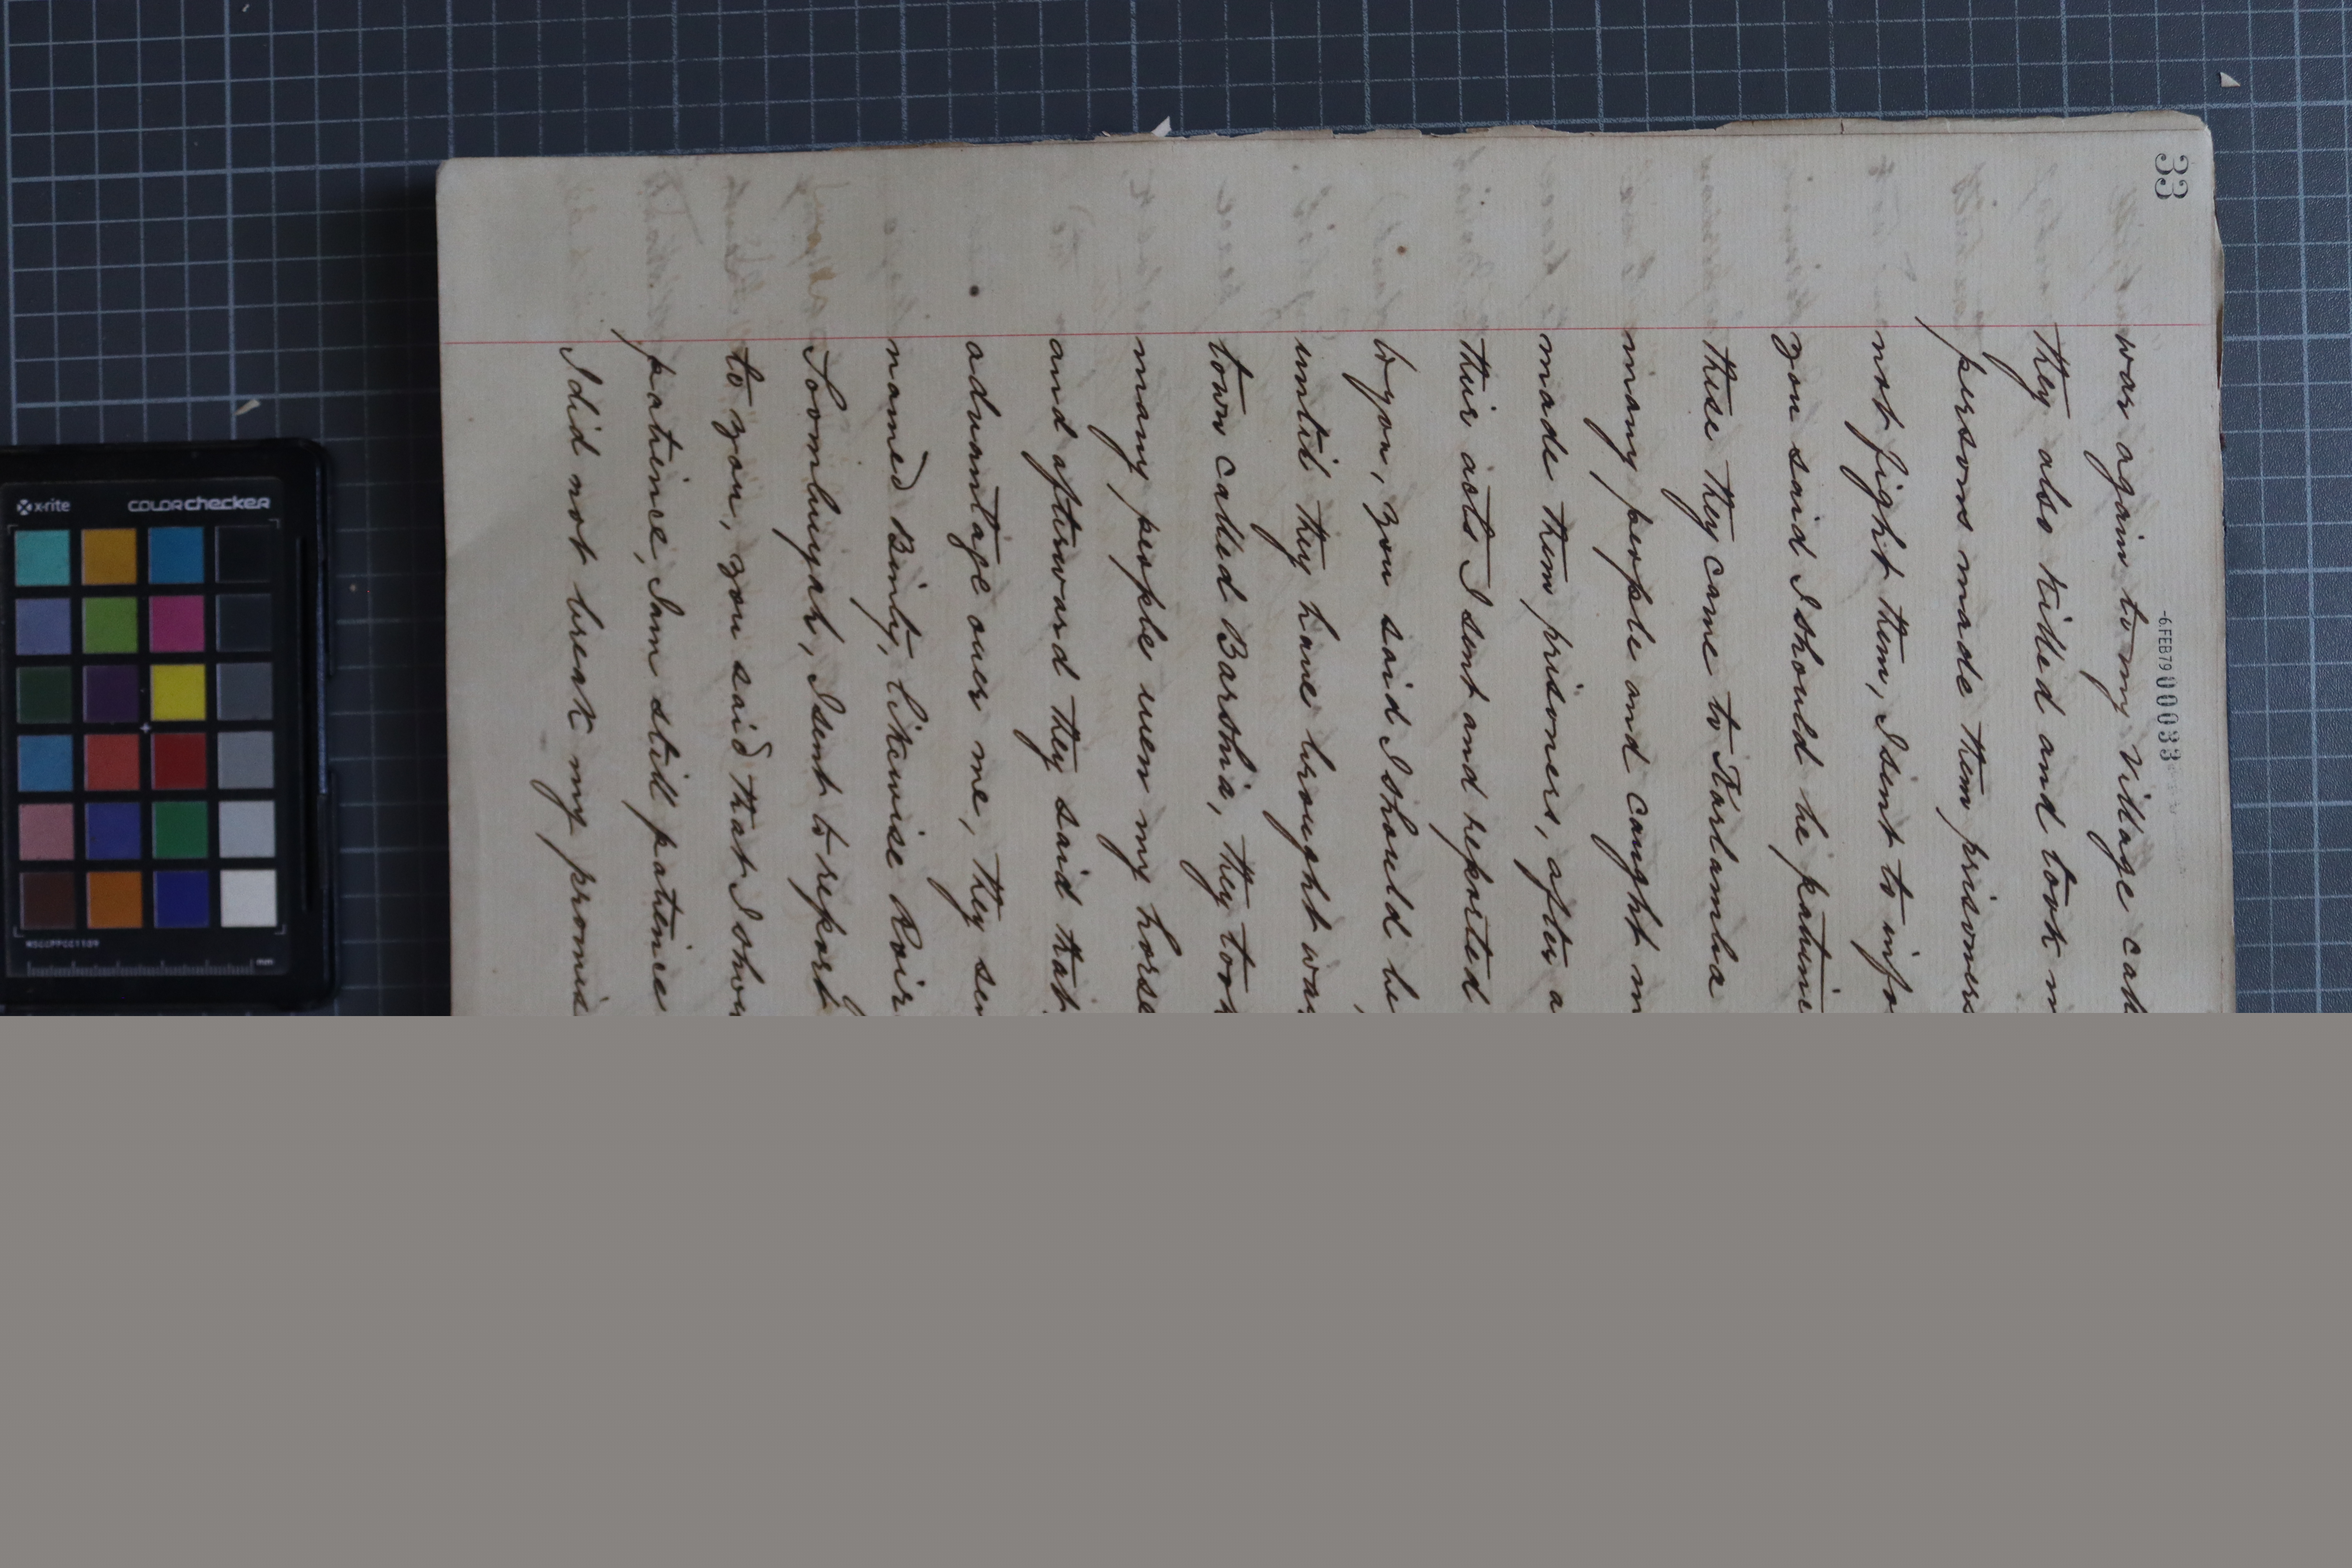 33
-6 FEB 79 00033
war again to my village cal
they also killed and took m
persons made them prisoners
not fight them, I sent to info
you said I should be patine
these they came to Tarlamba
many people and caught m
made them prisoners, after a
their acts I sent and reported
to you, you said I should be
until they have brought war
town called Barshia, they took
many people even my horse
and afterward they said that
advantage over me, they sen
named Binty, likewise
Toombuyah, I sent to report
to you, you said that I shou
patience, I am still patience
I did not break my promis
x-rite
COLORchecker
MSCCPPCC1109
mm